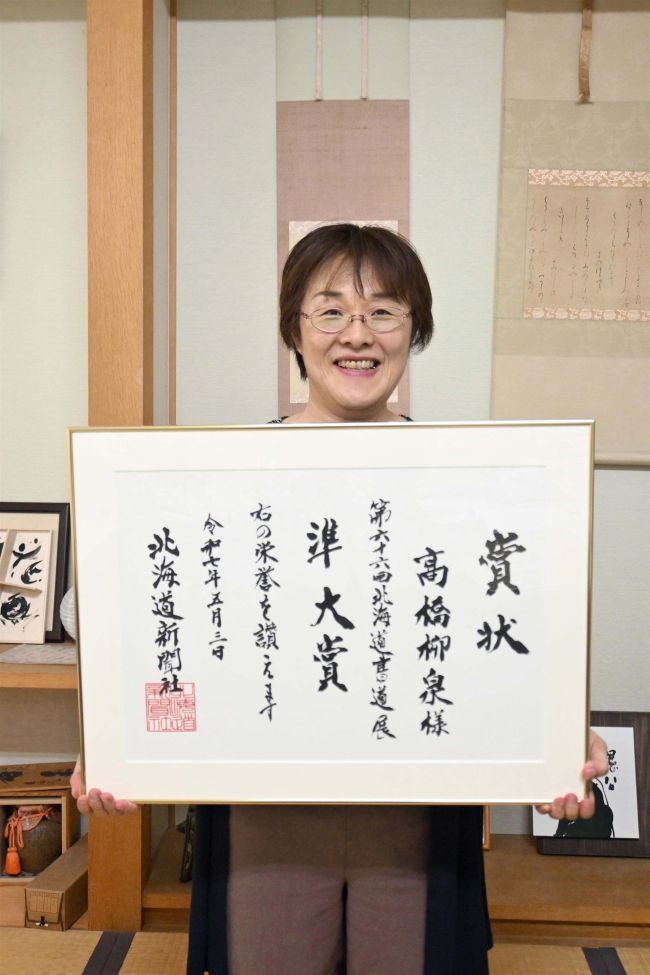 賞状
高橋柳泉様
第六十六回北海道書道展
準大賞
右の栄誉を讃えます
令和七年五月三日
北海道新聞社